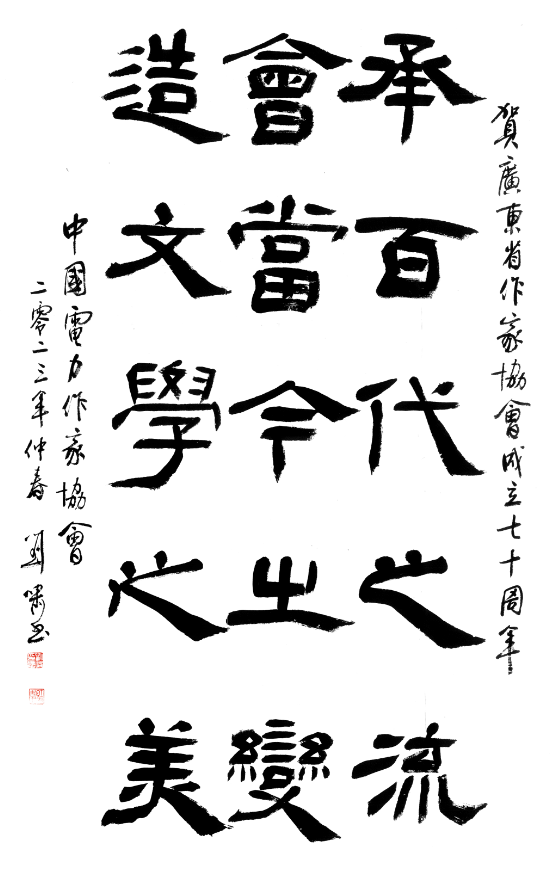 賀廣東省作家協會成立七十周年
承百代之流
會當今之變
造文學之美
中國電力作家協會
二零二三年仲春